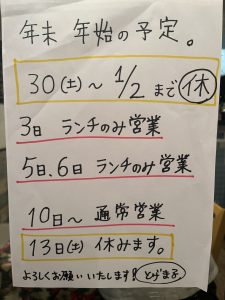 年末 年始の予定。
30(土)〜 1/2 まで 休
3日 ランチのみ営業
5日、6日 ランチのみ営業
10日〜 通常営業
13日(土) 休みます。
よろしくお願いいたします! とげまる